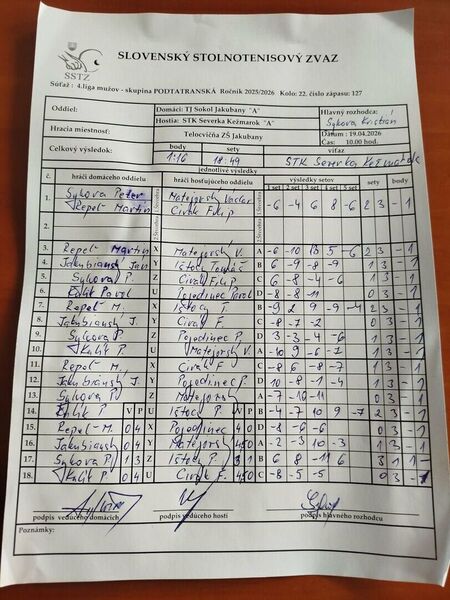 SLOVENSKÝ STOLNOTENISOVÝ ZVAZ
SSTZ
Súťaž : 4.liga mužov - skupina PODTATRANSKÁ Ročník 2025/2026 Kolo: 22. číslo zápasu: 127
Oddiel: Domáci: TJ Sokol Jakubany "A" Hlavný rozhodca:
Hostia: STK Severka Kežmarok "A" Sykora Kristián
Hracia miestnosť: Telocvičňa ZŠ Jakubany Dátum : 19.04.2026
Čas: 10.00 hod.
Celkový výsledok: body sety víťaz
1:16 18:49 STK Severka Kežmarok
jednotlivé výsledky
č. hráči domáceho oddielu hráči hosťujúceho oddielu výsledky setov sety body
1 set 2 set 3 set 4 set 5 set
1. Sykora Peter Matejorský Václav -6 -4 6 8 -6 2 3 - 1
Repeľ Martin Civák Filip
2.
3. Repeľ Martin X Matejorský V. A -6 -10 13 5 -6 2 3 - 1
4. Jakubianský Ján Y Ištocy Tomáš B 6 -9 -8 -9 1 3 - 1
5. Sykora P. Z Civák Filip C 6 -8 -4 -6 1 3 - 1
6. Kulik Pavol U Pojedinec Pavol D -8 -8 -11 0 3 - 1
7. Repeľ M. X Ištocy T. B -9 2 9 -9 -4 2 3 - 1
8. Jakubianský J. Y Civák F. C -8 -7 -2 0 3 - 1
9. Sykora P. Z Pojedinec P. D 3 -3 -4 -6 1 3 - 1
10. Kulik P. U Matejorský V. A -10 9 -6 -7 1 3 - 1
11. Repeľ M. X Civák F. C -8 6 -8 -7 1 3 - 1
12. Jakubianský J. Y Pojedinec P. D 10 -8 -1 -4 1 3 - 1
13. Sykora P. Z Matejorský A -7 -10 -11 0 3 - 1
14. Kulik P. V P U Ištocy V P B -4 -7 10 9 -7 2 3 - 1
15. Repeľ M. 0 4 X Pojedinec 4 0 D -8 -6 -6 0 3 - 1
16. Jakubianský 0 4 Y Matejorský 4 0 A -2 -3 10 -3 1 3 - 1
17. Sykora P. 1 3 Z Ištocy 3 1 B 6 8 -11 6 3 1 1 -
18. Kulik P. 0 4 U Civák F. 4 0 C -8 -5 -5 0 3 - 1
podpis vedúceho domácich podpis vedúceho hostí podpis hlavného rozhodcu
Poznámky: